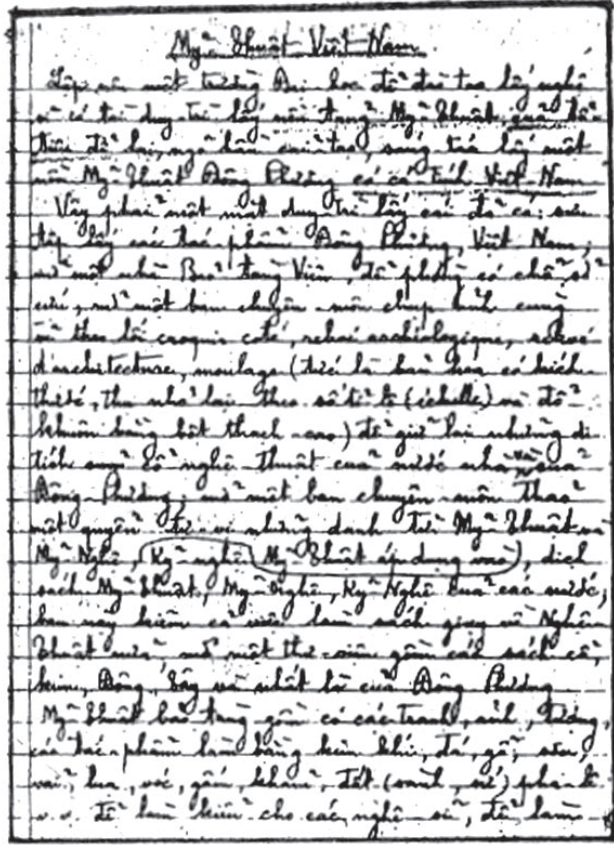 Mỹ-Thuật Việt Nam
Lập nên một trường Đại-học để đào tạo lấy nghệ
sĩ có tài duy trì lấy nền tảng Mỹ-Thuật của tổ-
tiên để lại, ngõ hầu sáng tạo lấy một
nền Mỹ-Thuật Đông Phương có cá tính Việt Nam
Vậy phải một mặt duy-trì lấy cái đồ cổ: sưu
tập lấy các tác-phẩm Đông Phương, Việt Nam,
mở một nhà Bảo tàng Viện, để phòng có chỗ
cứu, mở một ban chuyên-môn chụp hình cùng
vẽ theo lối croquis coté, relevé archéologique, relevé
d'architecture, moulage (tức là bản họa có kích
thước, thu nhỏ lại theo số tỉ lệ (échelle) và đổ
khuôn bằng bột thạch-cao) để giữ lại những di
tích mỹ nghệ-thuật của nước nhà và của
Đông-Phương; mở một ban chuyên-môn thảo
một quyển tự-vị những danh từ Mỹ-Thuật và
Mỹ-Nghệ, Kỹ-nghệ (Mỹ-Thuật áp dụng vào), dịch
sách Mỹ-Thuật, Mỹ-Nghệ, Kỹ-Nghệ của các nước,
ban này kiêm cả việc làm sách giạy về Nghệ-
Thuật nữa, mở một thư-viện gồm các sách cổ,
kim, Đông, Tây và nhất là của Đông Phương
Mỹ-Thuật bảo tàng gồm có các tranh, ảnh, tượng,
các tác-phẩm làm bằng kim khí, đá, gỗ, sơn,
vải, lụa, vóc, gấm, khảm, đất (sành, sứ) pha-lê
v.v. để làm kiểu cho các nghệ-sĩ, để làm